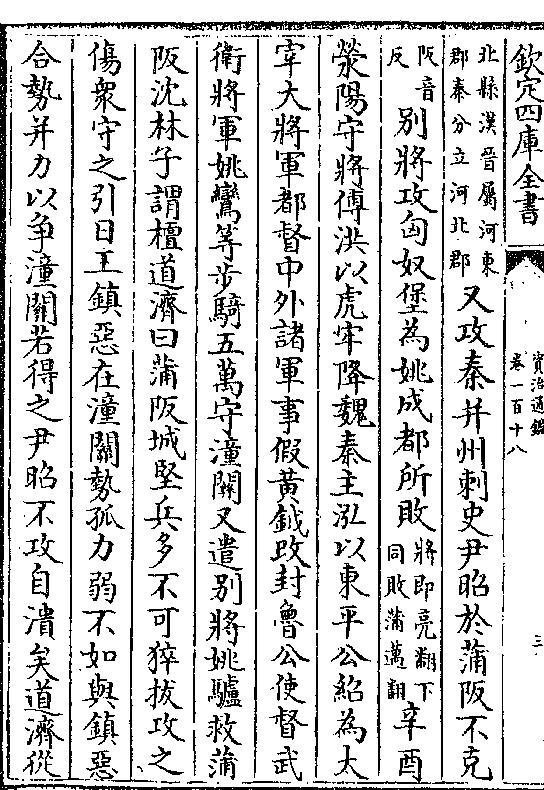 欽定四庫全書
資治通鑑
卷一百十八
三
北縣漢晉屬河東
郡秦分立河北郡
又攻秦并州刺史尹昭於蒲阪不克
阪音
反
別將攻匈奴堡為姚成都所敗
將即亮翻下
同敗蒲邁翻
辛酉
滎陽守將傅洪以虎牢降魏秦主泓以東平公紹為太
宰大將軍都督中外諸軍事假黃鉞改封魯公使督武
衛將軍姚鸞等步騎五萬守潼關又遣別將姚驢救蒲
阪沈林子謂檀道濟曰蒲阪城堅兵多不可猝拔攻之
傷衆守之引日王鎮惡在潼關勢孤力弱不如與鎮惡
合勢并力以争潼關若得之尹昭不攻自潰矣道濟從